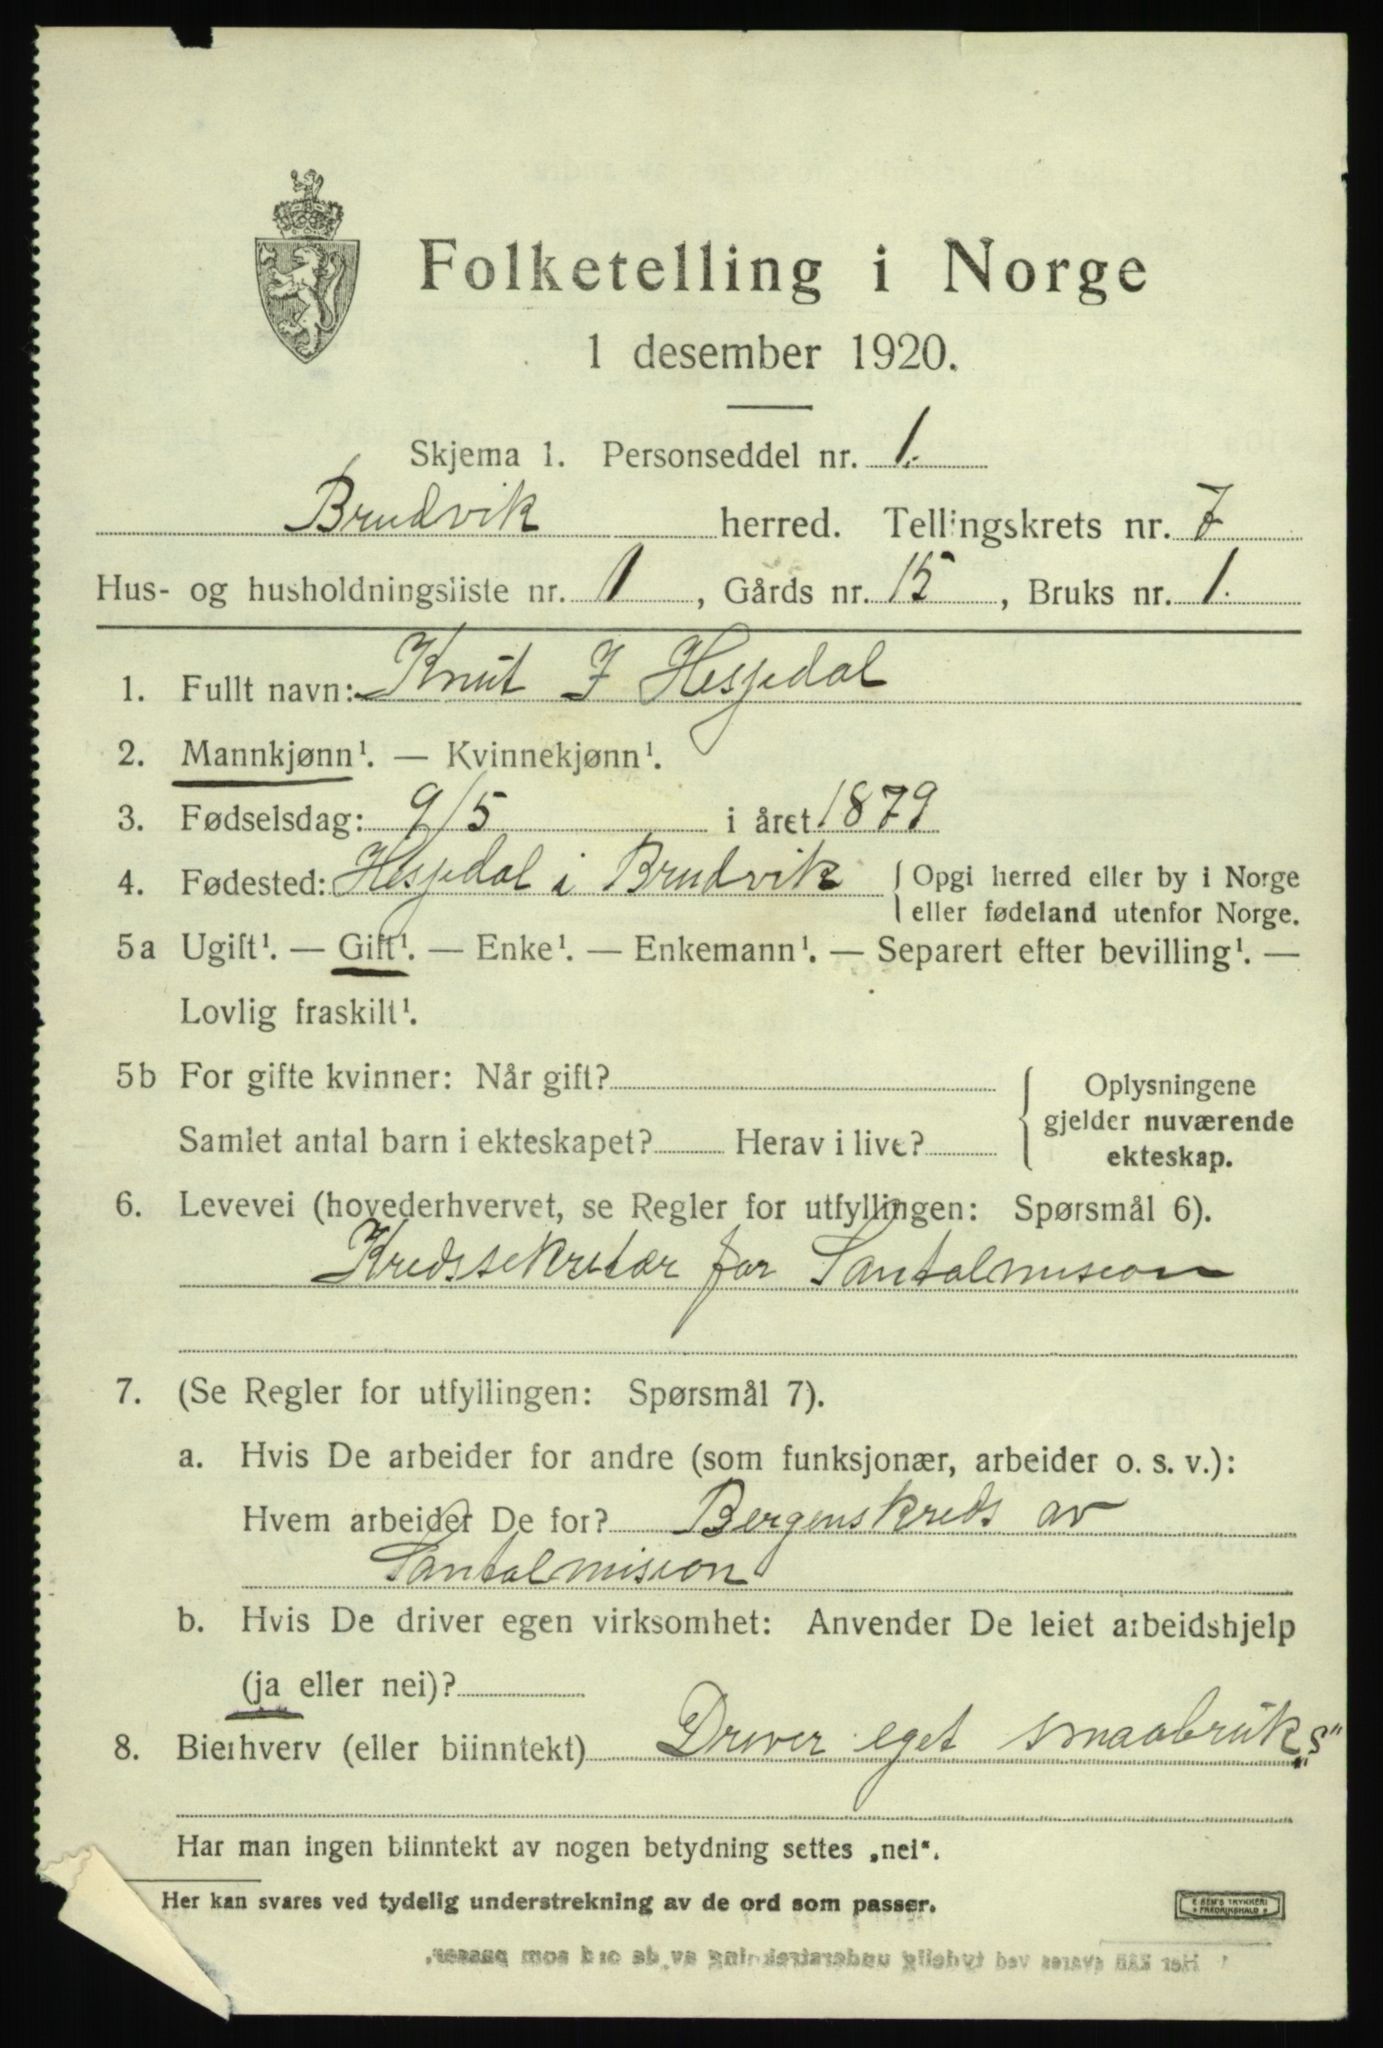 Folketelling i Norge
1 desember 1920.
Skjema 1. Personseddel nr. 1.
Brudvik herred. Tellingskrets nr. 7
Hus- og husholdningsliste nr. 1, Gårds nr. 15, Bruks nr. 1.
1. Fullt navn: Knut J Hesjedal
2. Mannkjønn¹. — Kvinnekjønn¹.
3. Fødselsdag: 9/5 i året 1879
4. Fødested: Hesjedal i Brudvik { Opgi herred eller by i Norge
eller fødeland utenfor Norge.
5a Ugift¹. — Gift¹. — Enke¹. — Enkemann¹. — Separert efter bevilling¹. —
Lovlig fraskilt¹.
5b For gifte kvinner: Når gift?
Samlet antal barn i ekteskapet? Herav i live?
{ Oplysningene
gjelder nuværende
ekteskap.
6. Levevei (hovederhvervet, se Regler for utfyllingen: Spørsmål 6).
Kredssekretær for Santalmision
7. (Se Regler for utfyllingen: Spørsmål 7).
a. Hvis De arbeider for andre (som funksjonær, arbeider o. s. v.):
Hvem arbeider De for? Bergenskreds av
Santalmision
b. Hvis De driver egen virksomhet: Anvender De leiet arbeidshjelp
(ja eller nei)?
8. Bierhverv (eller biinntekt) Driver eget smaabruk „S"
Har man ingen biinntekt av nogen betydning settes „nei“.
Her kan svares ved tydelig understrekning av de ord som passer.
E. SEM'S TRYKKERI
FREDRIKSHALD
¹ Her kan svares ved tydelig understrekning av de ord som passer.